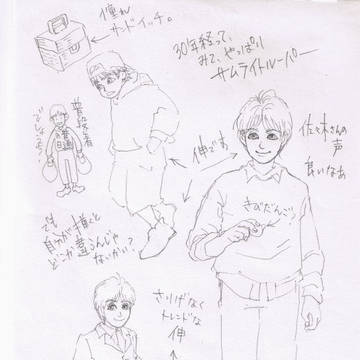 憧れの
サンドイッチ。
30年経って、
みて、やっぱり
サムライトルーパー
普段着
でしょ
普通
伸です
佐々木さんの
声
良いなあ
きびだんご
でも
自分が描くと
どこか違うんじゃ
ないかい？
さりげなく
トレンドな
伸